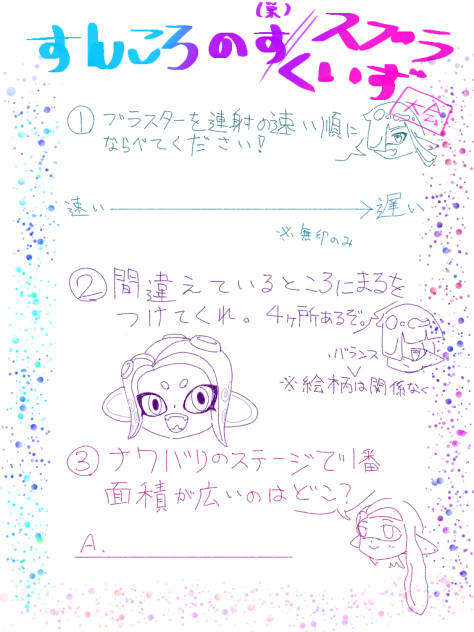 すんころのす(巣)/スプラ
くいず
大会
① ブラスターを連射の速い順に
ならべてください!
速い → 遅い
※無印のみ
② 間違えているところにまるを
つけてくれ。4ヶ所あるぞ。
バランス
※絵柄は関係なく
③ ナワバリのステージで1番
面積が広いのはどこ?
A.